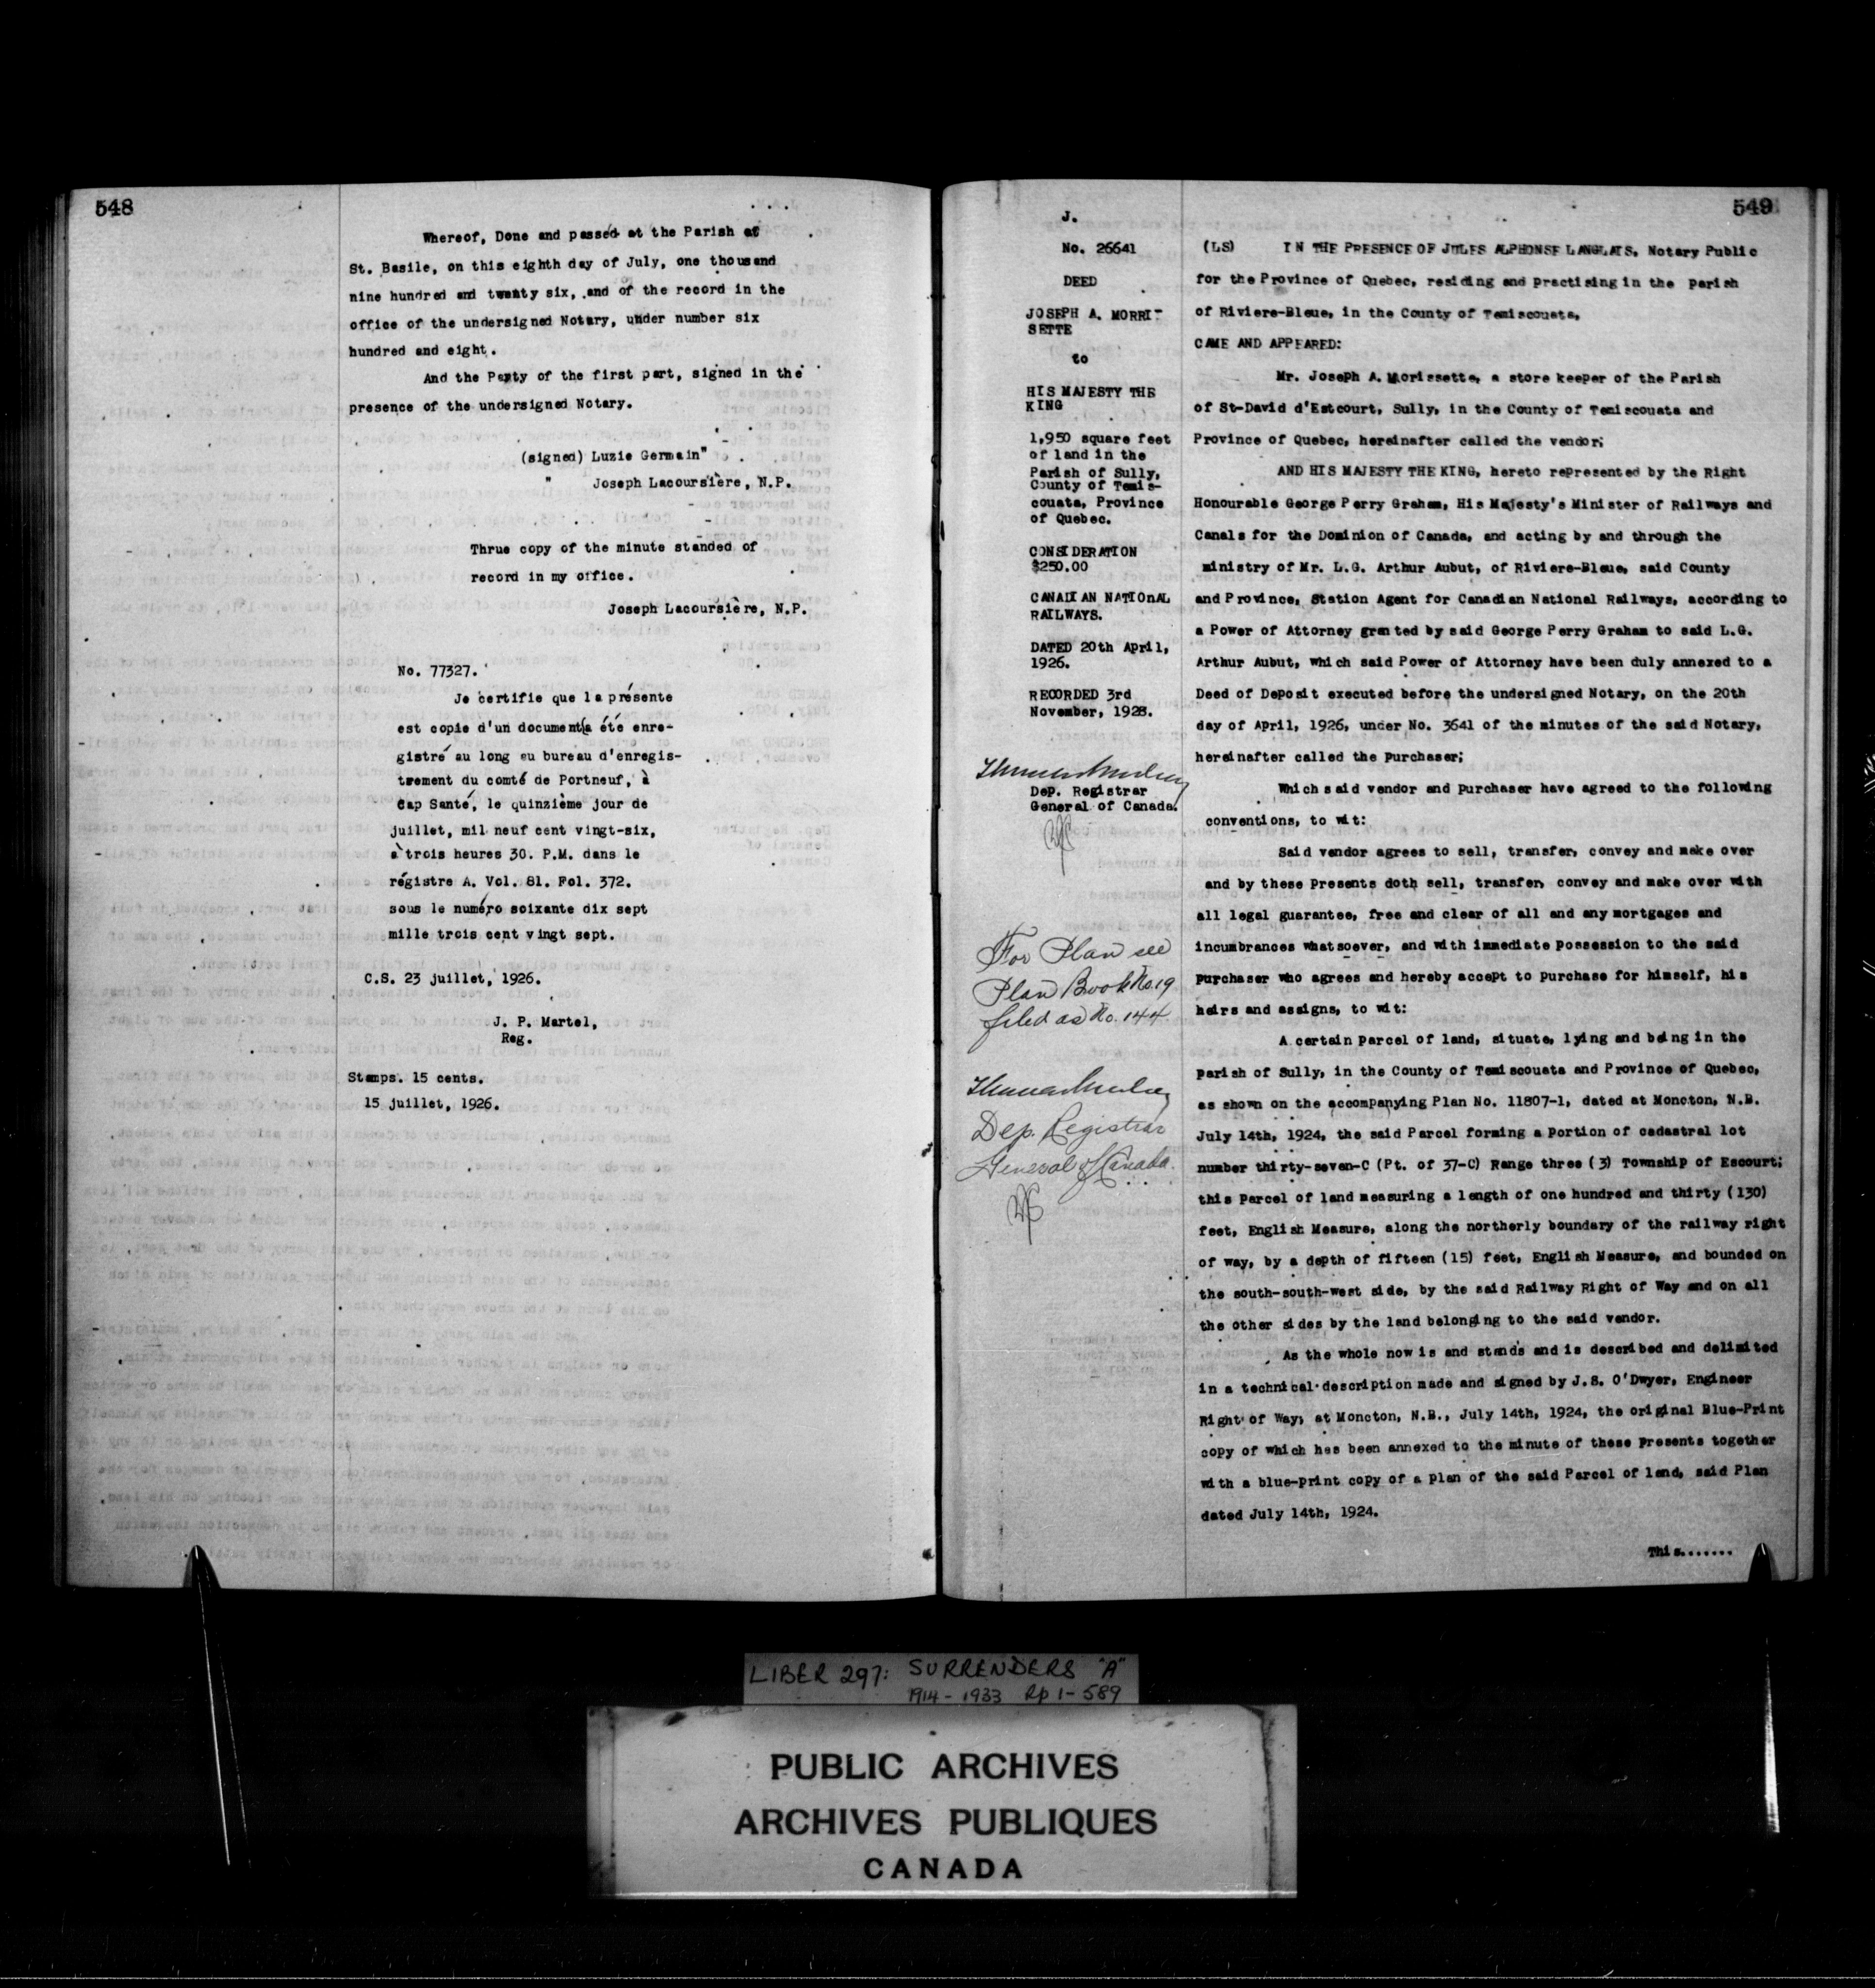 548
Whereof, Done and passed at the Parish of
St. Basile, on this eighth day of July, one thousand
nine hundred and twenty six, and of the record in the
office of the undersigned Notary, under number six
hundred and eight.
And the Party of the first part, signed in the
presence of the undersigned Notary.
(signed) Luzie Germain"
" Joseph Lacoursière, N.P.
Thrue copy of the minute standed of
record in my office.
Joseph Lacoursière, N.P.
No. 77327.
Je certifie que la présente
est copie d'un document a été enre-
gistré au long au bureau d'enregis-
trement du comté de Portneuf, à
Cap Santé, le quinzième jour de
juillet, mil neuf cent vingt-six,
à trois heures 30. P.M. dans le
régistre A. Vol. 81. Fol. 372.
sous le numéro soixante dix sept
mille trois cent vingt sept.
C.S. 23 juillet, 1926.
J. P. Martel,
Reg.
Stamps. 15 cents.
15 juillet, 1926.
549
J.
No. 26641
DEED
JOSEPH A. MORRI-
SETTE
to
HIS MAJESTY THE
KING
1,950 square feet
of land in the
Parish of Sully,
County of Temis-
couata, Province
of Quebec.
CONSIDERATION
$250.00
CANADIAN NATIONAL
RAILWAYS.
DATED 20th April,
1926.
RECORDED 3rd
November, 1928.
Dep. Registrar
General of Canada.
For Plan see
Plan Book No. 19
filed as No. 144
Dep. Registrar
General of Canada.
(LS) IN THE PRESENCE OF JULES ALPHONSE LANGLAIS, Notary Public
for the Province of Quebec, residing and practising in the parish
of Riviere-Bleue, in the County of Temiscouata,
CAME AND APPEARED:
Mr. Joseph A. Morissette, a store keeper of the Parish
of St-David d'Estcourt, Sully, in the County of Temiscouata and
Province of Quebec, hereinafter called the vendor;
AND HIS MAJESTY THE KING, hereto represented by the Right
Honourable George Perry Graham, His Majesty's Minister of Railways and
Canals for the Dominion of Canada, and acting by and through the
ministry of Mr. L.G. Arthur Aubut, of Riviere-Bleue, said County
and Province, Station Agent for Canadian National Railways, according to
a Power of Attorney granted by said George Perry Graham to said L.G.
Arthur Aubut, which said Power of Attorney have been duly annexed to a
Deed of Deposit executed before the undersigned Notary, on the 20th
day of April, 1926, under No. 3641 of the minutes of the said Notary,
hereinafter called the purchaser;
Which said vendor and purchaser have agreed to the following
conventions, to wit:
Said vendor agrees to sell, transfer, convey and make over
and by these presents doth sell, transfer, convey and make over with
all legal guarantee, free and clear of all and any mortgages and
incumbrances whatsoever, and with immediate possession to the said
purchaser who agrees and hereby accept to purchase for himself, his
heirs and assigns, to wit:
A certain parcel of land, situate, lying and being in the
parish of Sully, in the County of Temiscouata and Province of Quebec,
as shown on the accompanying Plan No. 11807-1, dated at Moncton, N.B.
July 14th, 1924, the said Parcel forming a portion of cadastral lot
number thirty-seven-C (Pt. of 37-C) Range three (3) Township of Escourt;
this parcel of land measuring a length of one hundred and thirty (130)
feet, English Measure, along the northerly boundary of the railway right
of way, by a depth of fifteen (15) feet, English Measure, and bounded on
the south-south-west side, by the said Railway Right of Way and on all
the other sides by the land belonging to the said vendor.
As the whole now is and stands and is described and delimited
in a technical description made and signed by J.S. O'Dwyer, Engineer
Right of Way, at Moncton, N.B., July 14th, 1924, the original Blue-Print
copy of which has been annexed to the minute of these presents together
with a blue-print copy of a plan of the said Parcel of land, said Plan
dated July 14th, 1924.
This.......
LIBER 297: SURRENDERS "A"
1914-1933 Pp 1-589
PUBLIC ARCHIVES
ARCHIVES PUBLIQUES
CANADA